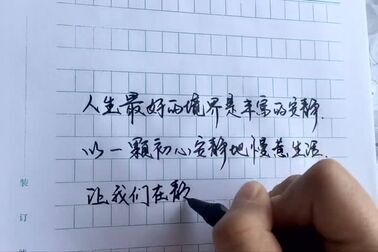 人生最好的境界是丰富的安静.
以一颗初心安静地慢煮生活.
让我们在静
装
订